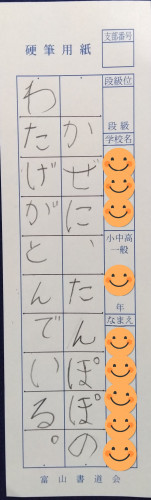 硬筆用紙
支部番号
段級位
段級
学校名
小中高
一般
年
なまえ
かぜに、たんぽぽの
わたげがとんでいる。
富山書道会